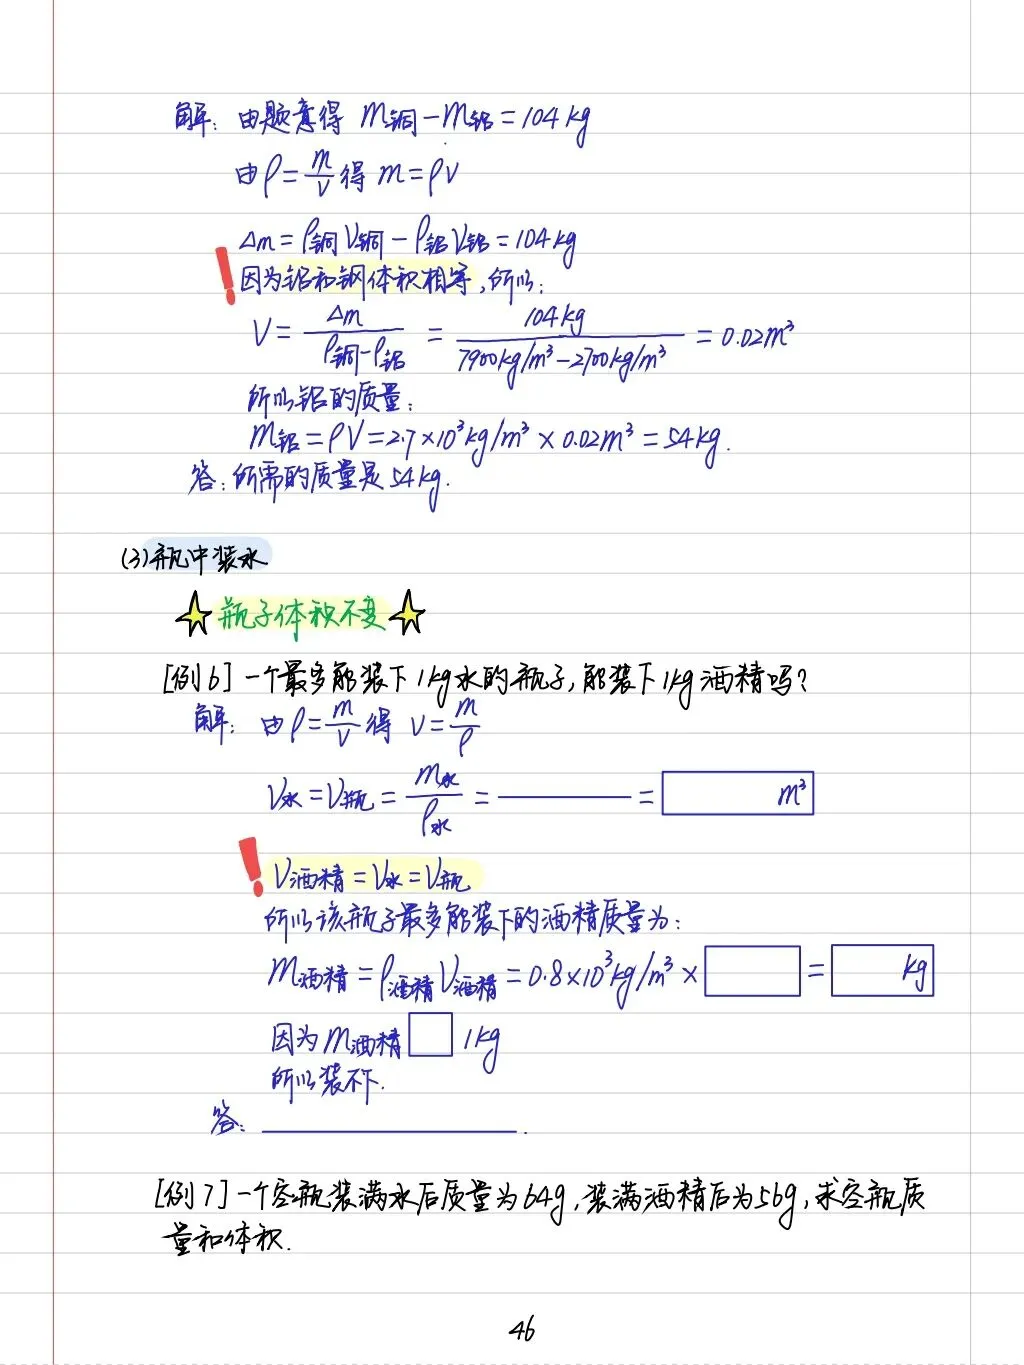 解：由题意得 m铜-m铝=104kg
由ρ=m/V得 m=ρV
Δm=ρ铜V铜-ρ铝V铝=104kg
因为铝和钢体积相等，所以：
V=Δm/(ρ铜-ρ铝)=104kg/(7900kg/m³-2700kg/m³)=0.02m³
所以铝的质量：
m铝=ρV=2.7×10³kg/m³×0.02m³=54kg.
答：所需的质量是54kg.
(3)瓶中装水
瓶子体积不变
[例6]一个最多能装下1kg水的瓶子，能装下1kg酒精吗？
解：由ρ=m/V得 V=m/ρ
V水=V瓶=m水/ρ水=————=m³
V酒精=V水=V瓶
所以该瓶子最多能装下的酒精质量为：
m酒精=ρ酒精V酒精=0.8×10³kg/m³×□=kg
因为m酒精□1kg
所以装不下.
答：________.
[例7]一个空瓶装满水后质量为64g，装满酒精后为56g，求空瓶质
量和体积.
46